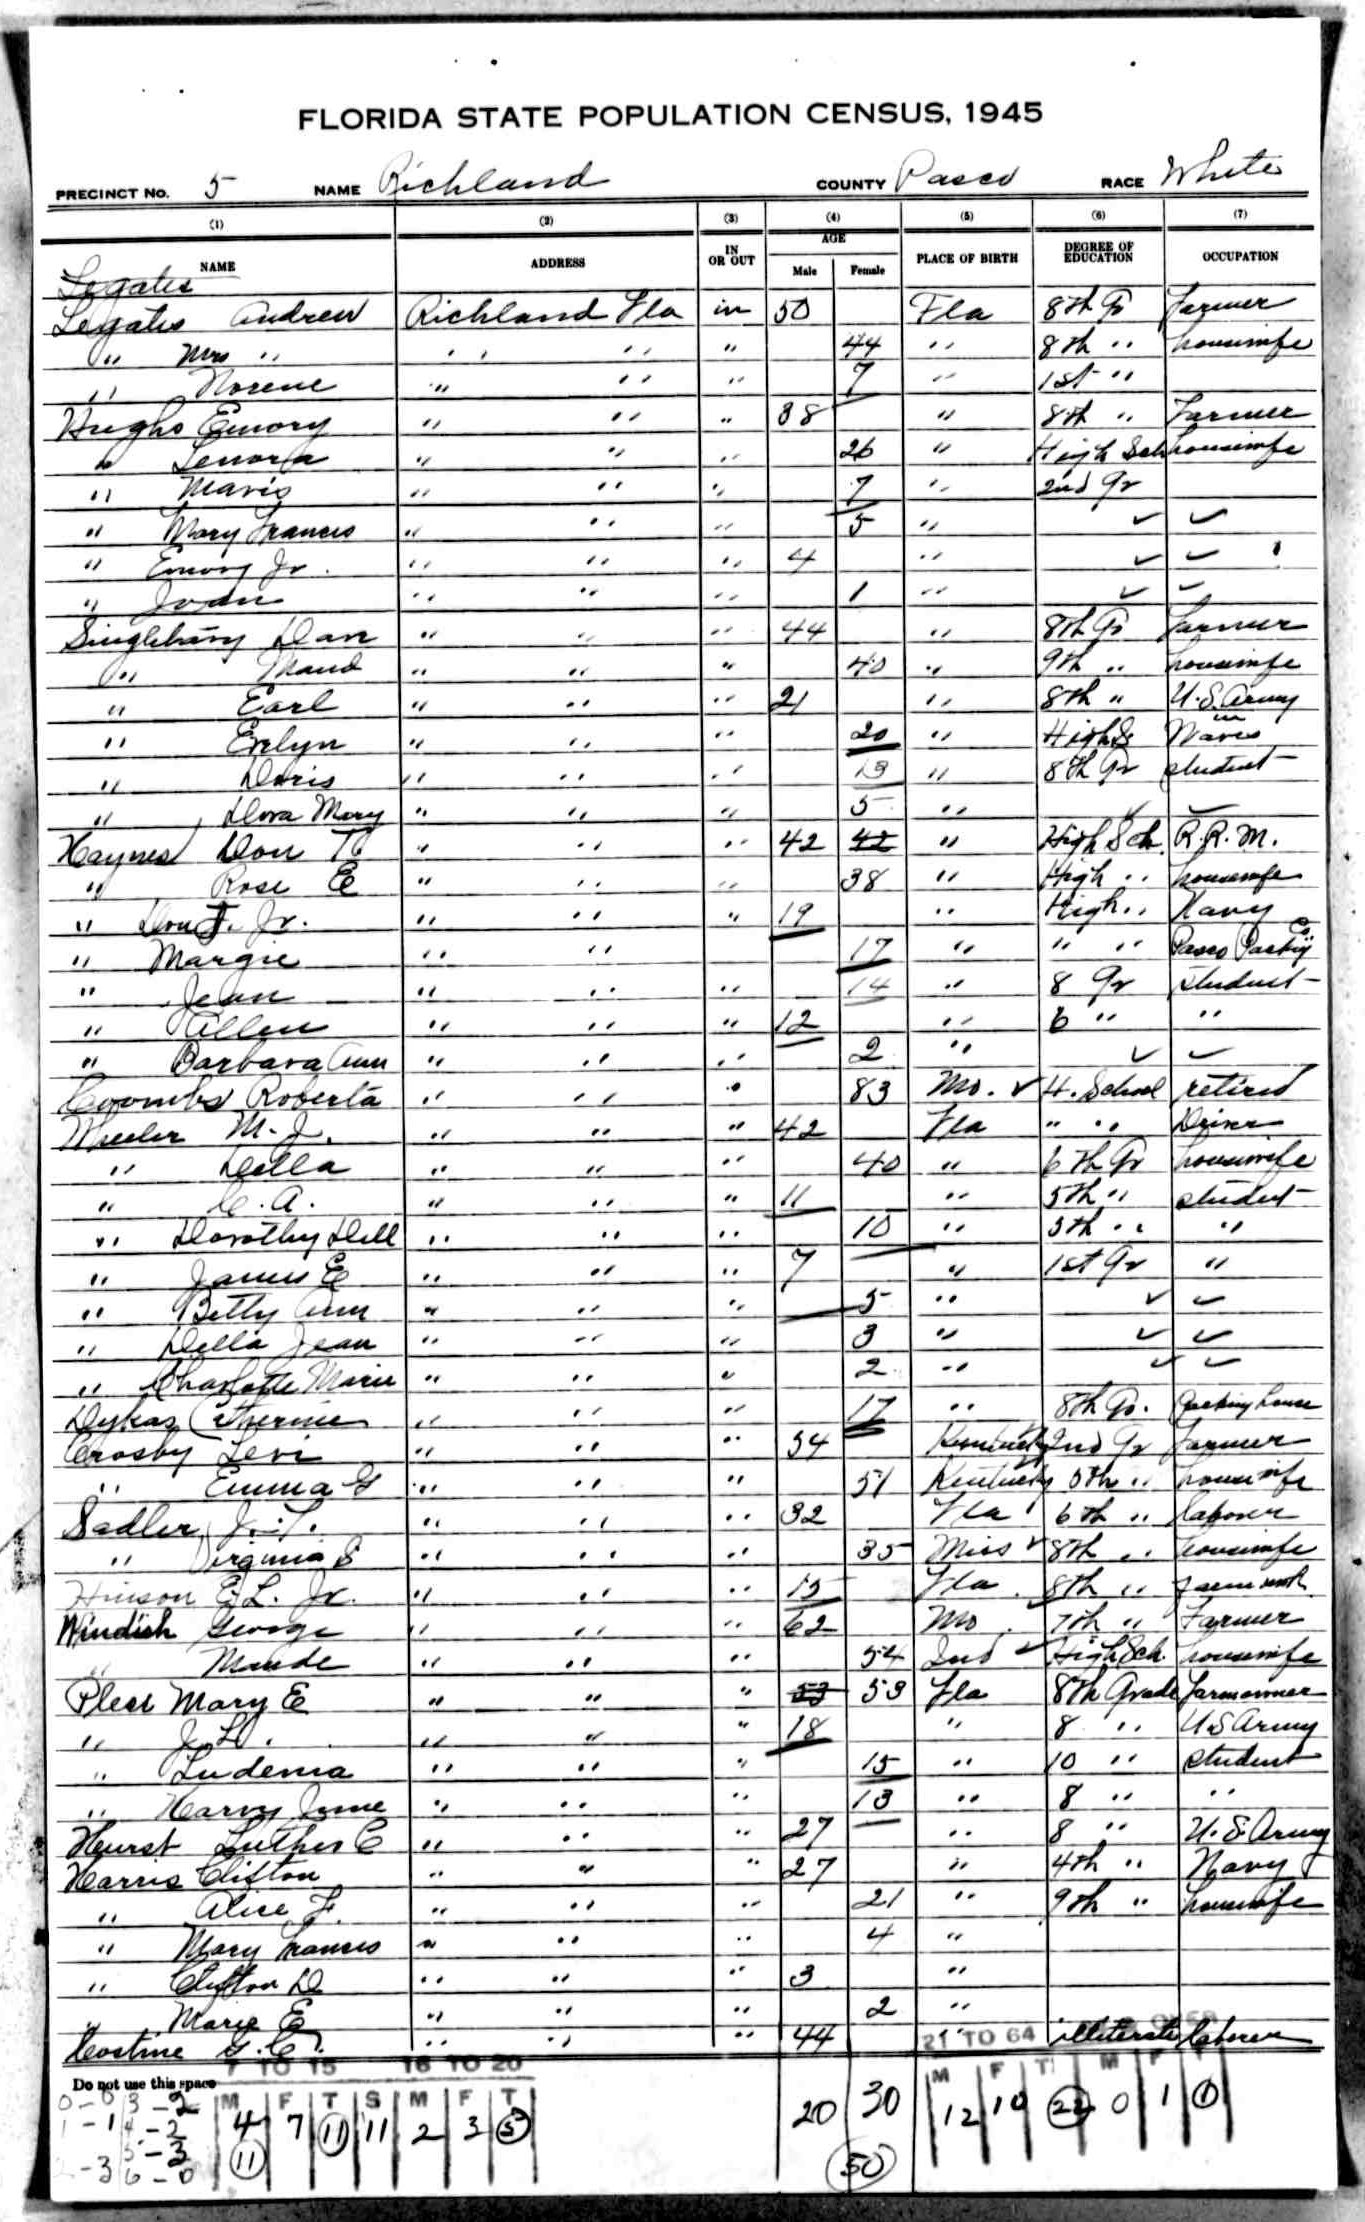 FLORIDA STATE POPULATION CENSUS, 1945
PRECINCT No. 5 NAME Richland COUNTY Pasco RACE White
(1) (2) (3) (4) (5) (6) (7)
NAME ADDRESS IN OR OUT AGE Male Female PLACE OF BIRTH DEGREE OF EDUCATION OCCUPATION
Legates
Legates Andrew Richland Fla in 50 Fla 8th Gr Farmer
" Mrs " " " " 44 " 8th " housewife
" Norene " " " 7 " 1st "
Hughs Emory " " " 38 " 8th " Farmer
" Lenora " " " 26 " High Sch housewife
" Mavis " " " 7 " 2nd Gr
" Mary Francis " " " 5 " ✓ ✓
" Emory Jr. " " " 4 " ✓ ✓
" Joan " " " 1 " ✓ ✓
Singletary Dan " " " 44 " 8th Gr Farmer
" Maud " " " 40 " 9th " housewife
" Earl " " " 21 " 8th " U.S. Army
" Evelyn " " " 20 " High S in Waves
" Doris " " " 13 " 8th Gr student
" Dora Mary " " " 5 " ✓ ✓
Haynes Don T. " " " 42 42 " High Sch. R.R.M.
" Rose E " " " 38 " High " housewife
" Don T. Jr. " " " 19 " High " Navy
" Margie " " 17 " " " Pasco Packing Co.
" Jean " " " 14 " 8 Gr student
" Allen " " " 12 " 6 " "
" Barbara Ann " " " 2 " ✓ ✓
Coombs Roberta " " " 83 Mo. ✓ H. School retired
Wheeler M. J. " " " 42 Fla " " Driver
" Della " " " 40 " 6th Gr housewife
" C. A. " " " 11 " 5th " student
" Dorothy Dell " " " 10 " 5th " "
" James E " " " 7 " 1st Gr "
" Betty Ann " " " 5 " ✓ ✓
" Della Jean " " " 3 " ✓ ✓
" Charlotte Marie " " " 2 " ✓ ✓
Dykas Catherine " " " 17 " 8th Gr. Packing house
Crosby Levi " " " 54 Kentucky 2nd Gr Farmer
" Emma G " " " 51 Kentucky 5th " housewife
Sadler J. T. " " " 32 Fla 6th " laborer
" Virginia S " " " 35 Miss ✓ 8th " housewife
Hinson E. L. Jr. " " " 15 Fla. 8th " farm work
Windish George " " " 62 Mo. 7th " Farmer
" Maude " " " 54 Ind ✓ High Sch. housewife
Mary E " " " 53 53 Fla 8th Grade farmowner
" J. D. " " " 18 " 8 " U.S Army
" Ludenia " " " 15 " 10 " student
" Harvy June " " " 13 " 8 " "
Hurst Luther C " " " 27 " 8 " U.S. Army
Harris Clifton " " " 27 " 4th " Navy
" Alice F. " " " 21 " 9th " housewife
" Mary Francis " " " 4 "
" Clifton D " " " 3 "
" Marie E " " " 2 "
Costine G. C. " " " 44 " illiterate laborer
7 TO 15 16 TO 20 21 TO 64 OVER
Do not use this space
M F T S M F T M F T M F T
4 7 11 11 2 3 5 20 30 12 10 22 0 1 1
11 50
0-0 3-2
1-1 4-2
5-3
2-3 6-0